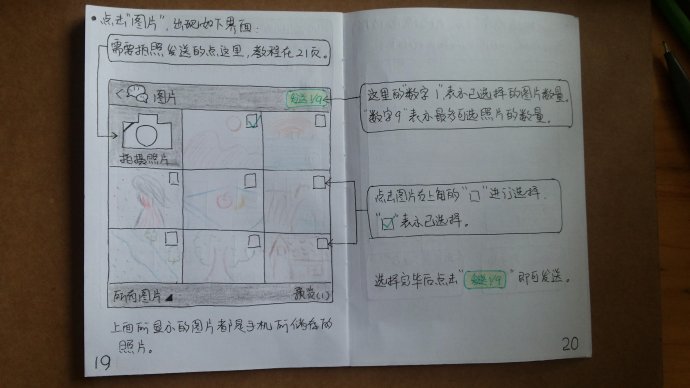 • 点击"图片",出现如下界面:
需要拍照发送的点这里,教程在21页。
< 图片 发送1/9
拍摄照片
所有图片 预览(1)
上面所显示的图片都是手机所储存的
照片。
19
这里的"数字1"表示已选择的图片数量。
"数字9"表示最多可选照片的数量。
点击图片右上角的"□"进行选择.
"☑"表示已选择。
选择完毕后点击"发送1/9"即可发送。
20